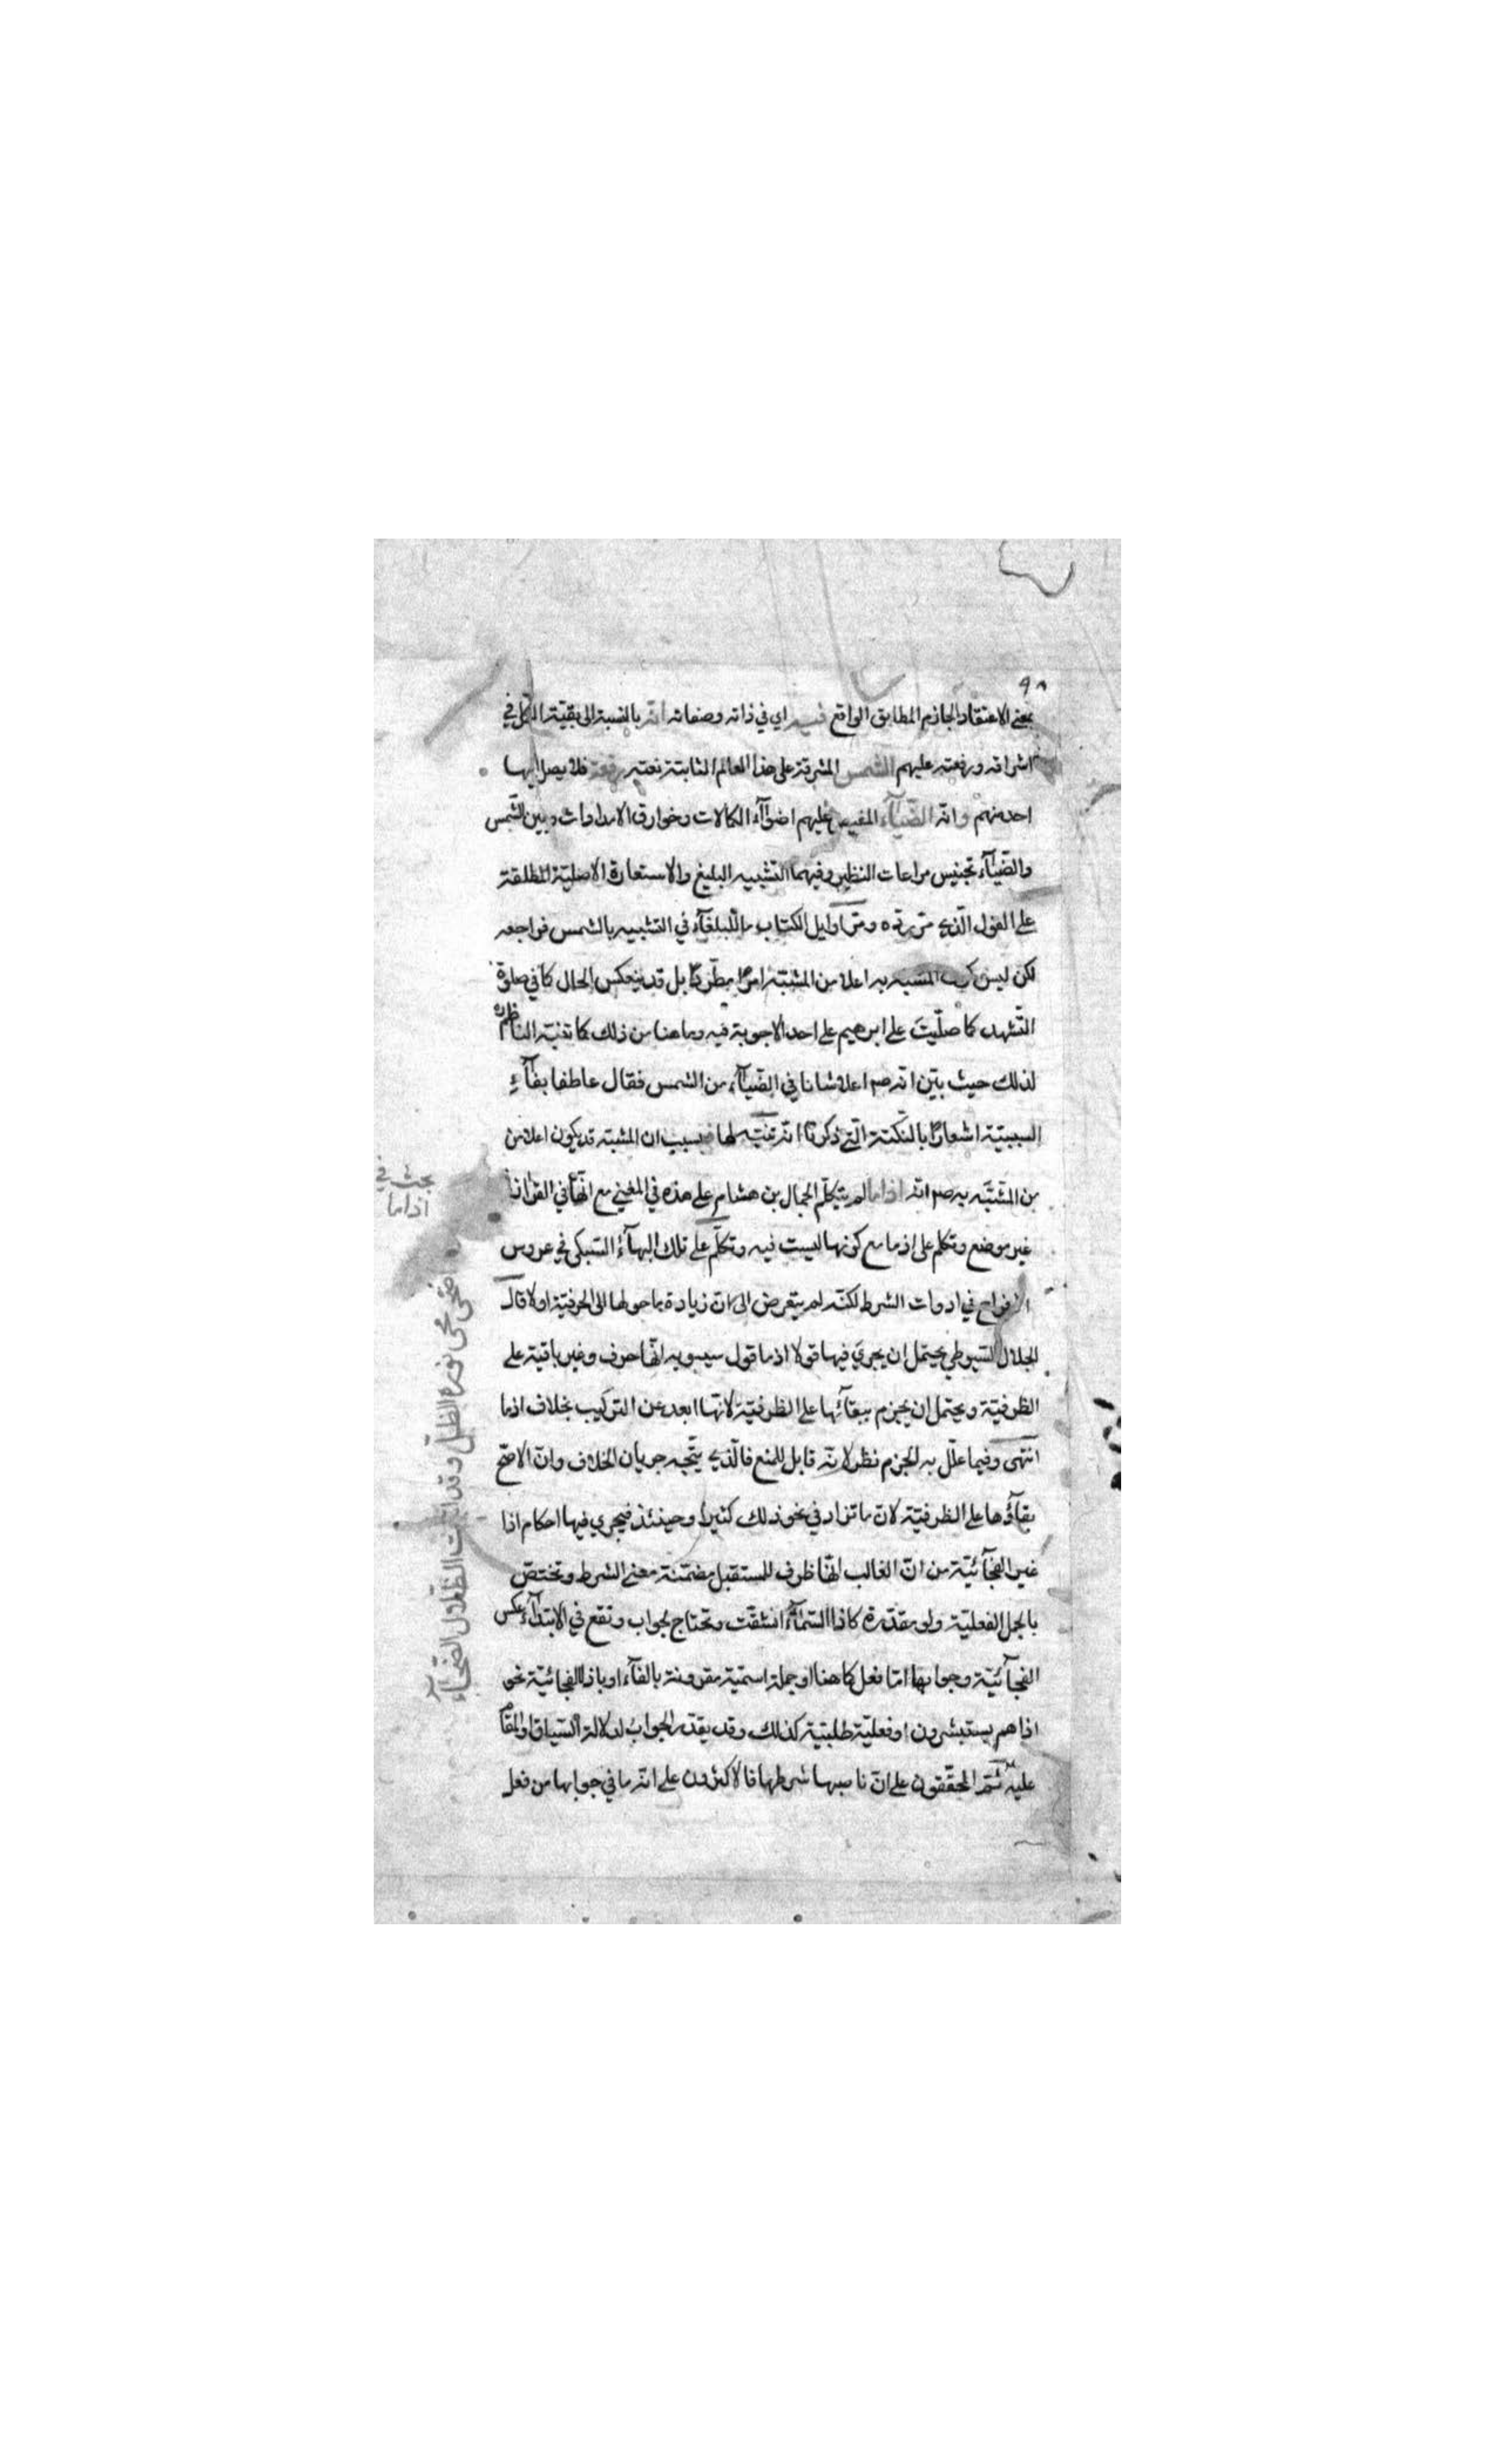 ٩٨
بمعنى الاعتقاد الجازم المطابق الواقع فيه اي في ذاته وصفاته انه بالنسبة الى بقية الكل في
اشراقه ورفعته عليهم الشمس المشرقة على هذا العالم الثابتة نعتيه رفعة فلا يصل اليها
احد منهم وانه الضيآء المفيض عليهم اضوآء الكالات وخوارق الامدادات وبين الشمس
والضيآء تجنيس مراعات النظير وفيهما التشبيه البليغ والاستعارة الاصلية المطلقة
على القول الذي مر رده ومر اوايل الكتاب ما للبلغآء في التشبيه بالشمس فراجعه
لكن ليس كون المشبه به اعلا من المشبه امرا مطردا بل قد ينعكس الحال كما في صلوة
التشهد كما صليت على ابرهيم على احد الاجوبة فيه وما هنا من ذلك كما تنبه الناظم
لذلك حيث بين انه صم اعلا شانا في الضيآء من الشمس فقال عاطفا بفآء
السببية اشعارا بالنكتة التي ذكرنا انه تنبه لها فبسبب ان المشبه قد يكون اعلا من
من المشبه به صم انه اذا ما لم يتكلم الجمال بن هشام على هذه في المغني مع انها في القران في
غير موضع وتكلم على اذ ما مع كونها ليست فيه وتكلم على تلك البهآء السبكي في عروس
الافراح في ادوات الشرط لكنه لم يتعرض الى ان زيادة ما حولها الى الحرفية او لا قال
الجلال السيوطي يحتمل ان يجرى فيها قولا اذ ما قول سيبويه انها حرف وغير باقية على
الظرفية ويحتمل ان يجزم ببقآئها على الظرفية لانها ابعد عن التركيب بخلاف اذ ما
انتهى وفيما علل به الجزم نظر لانه قابل للمنع فالذي يتجه جريان الخلاف وان الاصح
بقآؤها على الظرفية لان ما تزاد في نحو ذلك كثيرا وحينئذ فيجري فيها احكام اذا
غير الفجآئية من ان الغالب انها ظرف للمستقبل مضمنة معنى الشرط وتختص
بالجمل الفعلية ولو مقدرة كاذا السمآء انشقت وتحتاج لجواب وتقع في الابتدآء عكس
الفجآئية وجوابها اما فعل كما هنا او جملة اسمية مقرونة بالفآء او باذا الفجائية نحو
اذا هم يستبشرون او فعلية طلبية كذلك وقد يقدر الجواب لدلالة السياق او المقام
عليه ثم المحققون على ان ناصبها شرطها فالاكثرون على انه ما في جوابها من فعل
بحث في
اذا ما
ضحى محى نوره الظل وقد اثبت الظلال الضحآء